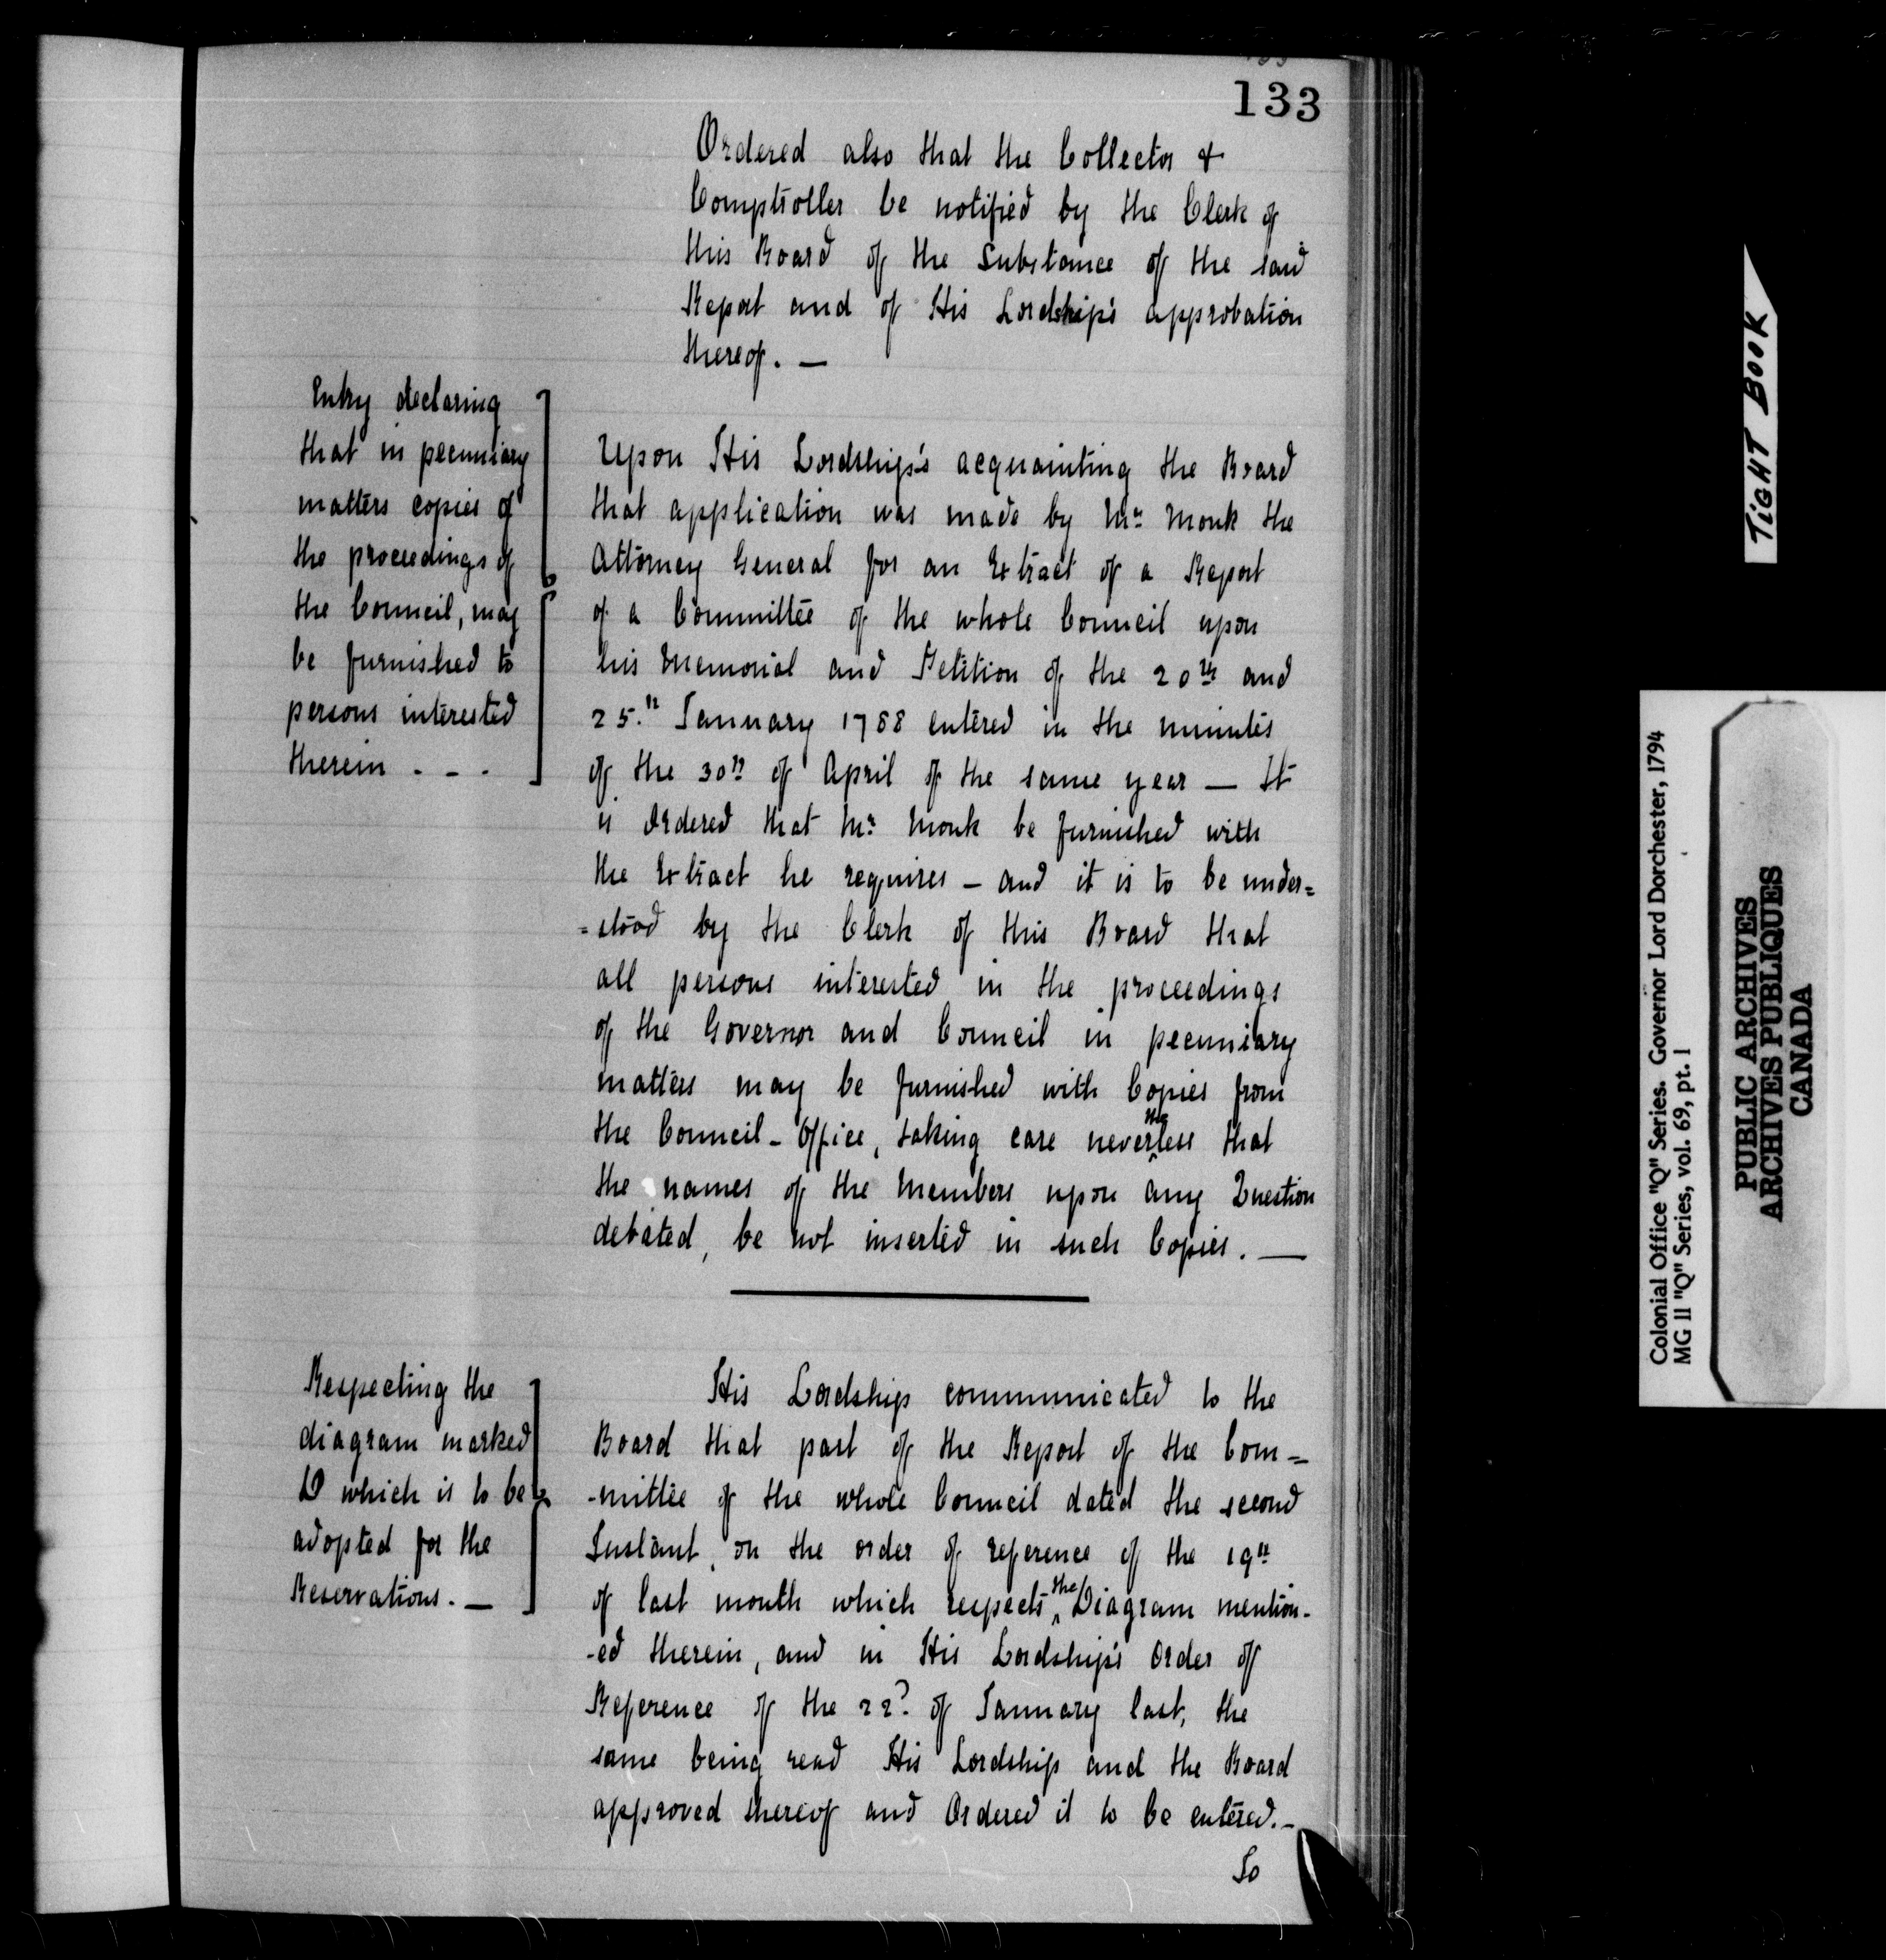 133
Ordered also that the Collector &
Comptroller be notified by the Clerk of
this Board of the Substance of the said
Report and of His Lordship's approbation
thereof. —
Entry declaring
that in pecuniary
matters copies of
the proceedings of
the Council, may
be furnished to
persons interested
therein . - .
Upon His Lordship's acquainting the Board
that application was made by Mr. Monk the
Attorney General for an Extract of a Report
of a Committee of the whole Council upon
his Memorial and Petition of the 20th and
25.th January 1788 entered in the minutes
of the 30th of April of the same year — It
is Ordered that Mr. Monk be furnished with
the Extract he requires - and it is to be under=
=stood by the Clerk of this Board that
all persons interested in the proceedings
of the Governor and Council in pecuniary
matters may be furnished with Copies from
the Council-Office, taking care nevertheless that
the names of the Members upon any Question
debated, be not inserted in such Copies. —
Respecting the
diagram marked
D which is to be
adopted for the
Reservations. —
His Lordship communicated to the
Board that part of the Report of the Com=
-mittee of the whole Council dated the second
Instant, on the order of reference of the 19th
of last month which respects the Diagram mention-
-ed therein, and in His Lordship's Order of
Reference of the 22d. of January last, the
same being read His Lordship and the Board
approved thereof and Ordered it to be entered. -
So
TIGHT BOOK
Colonial Office "Q" Series. Governor Lord Dorchester, 1794
MG 11 "Q" Series, vol. 69, pt. 1
PUBLIC ARCHIVES
ARCHIVES PUBLIQUES
CANADA